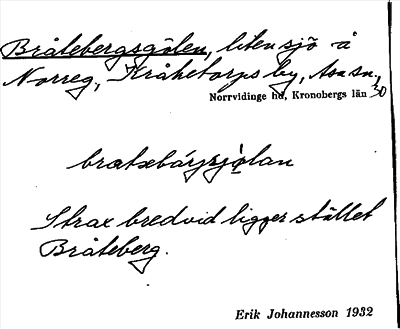 Bråtebergsgölen, liten sjö å
Norreg, Kråketorps by, Asa sn,
Norrvidinge hd, Kronobergs län 30
bratebärjsjölan
Strax bredvid ligger stället
Bråteberg.
Erik Johannesson 1932